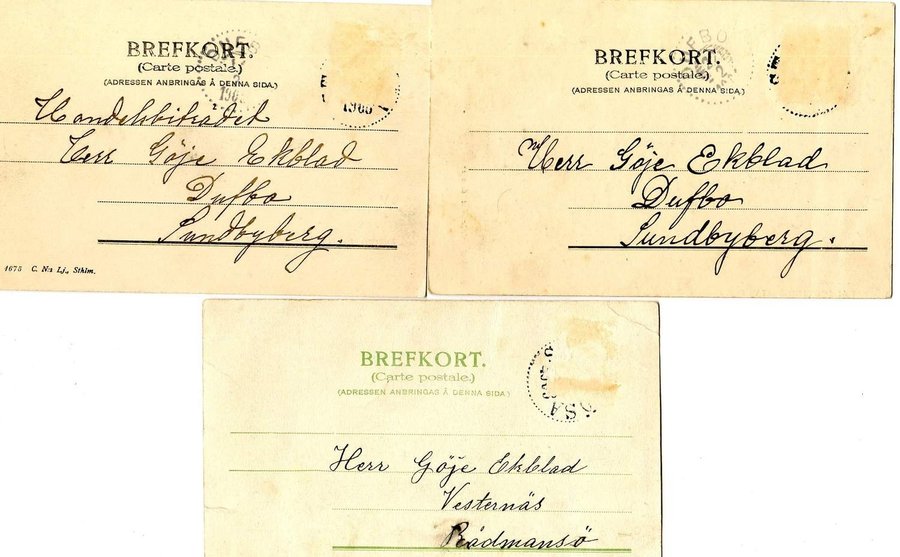 BREFKORT.
(Carte postale.)
(ADRESSEN ANBRINGAS Å DENNA SIDA.)
1905
Handelsbiträdet
Herr Göje Ekblad
Dufbo
Sundbyberg.
4675 C. N:s Lj., Sthlm.
BREFKORT.
(Carte postale.)
(ADRESSEN ANBRINGAS Å DENNA SIDA.)
Herr Göje Ekblad
Dufbo
Sundbyberg.
BREFKORT.
(Carte postale.)
(ADRESSEN ANBRINGAS Å DENNA SIDA.)
Herr Göje Ekblad
Vesternäs
Rådmansö